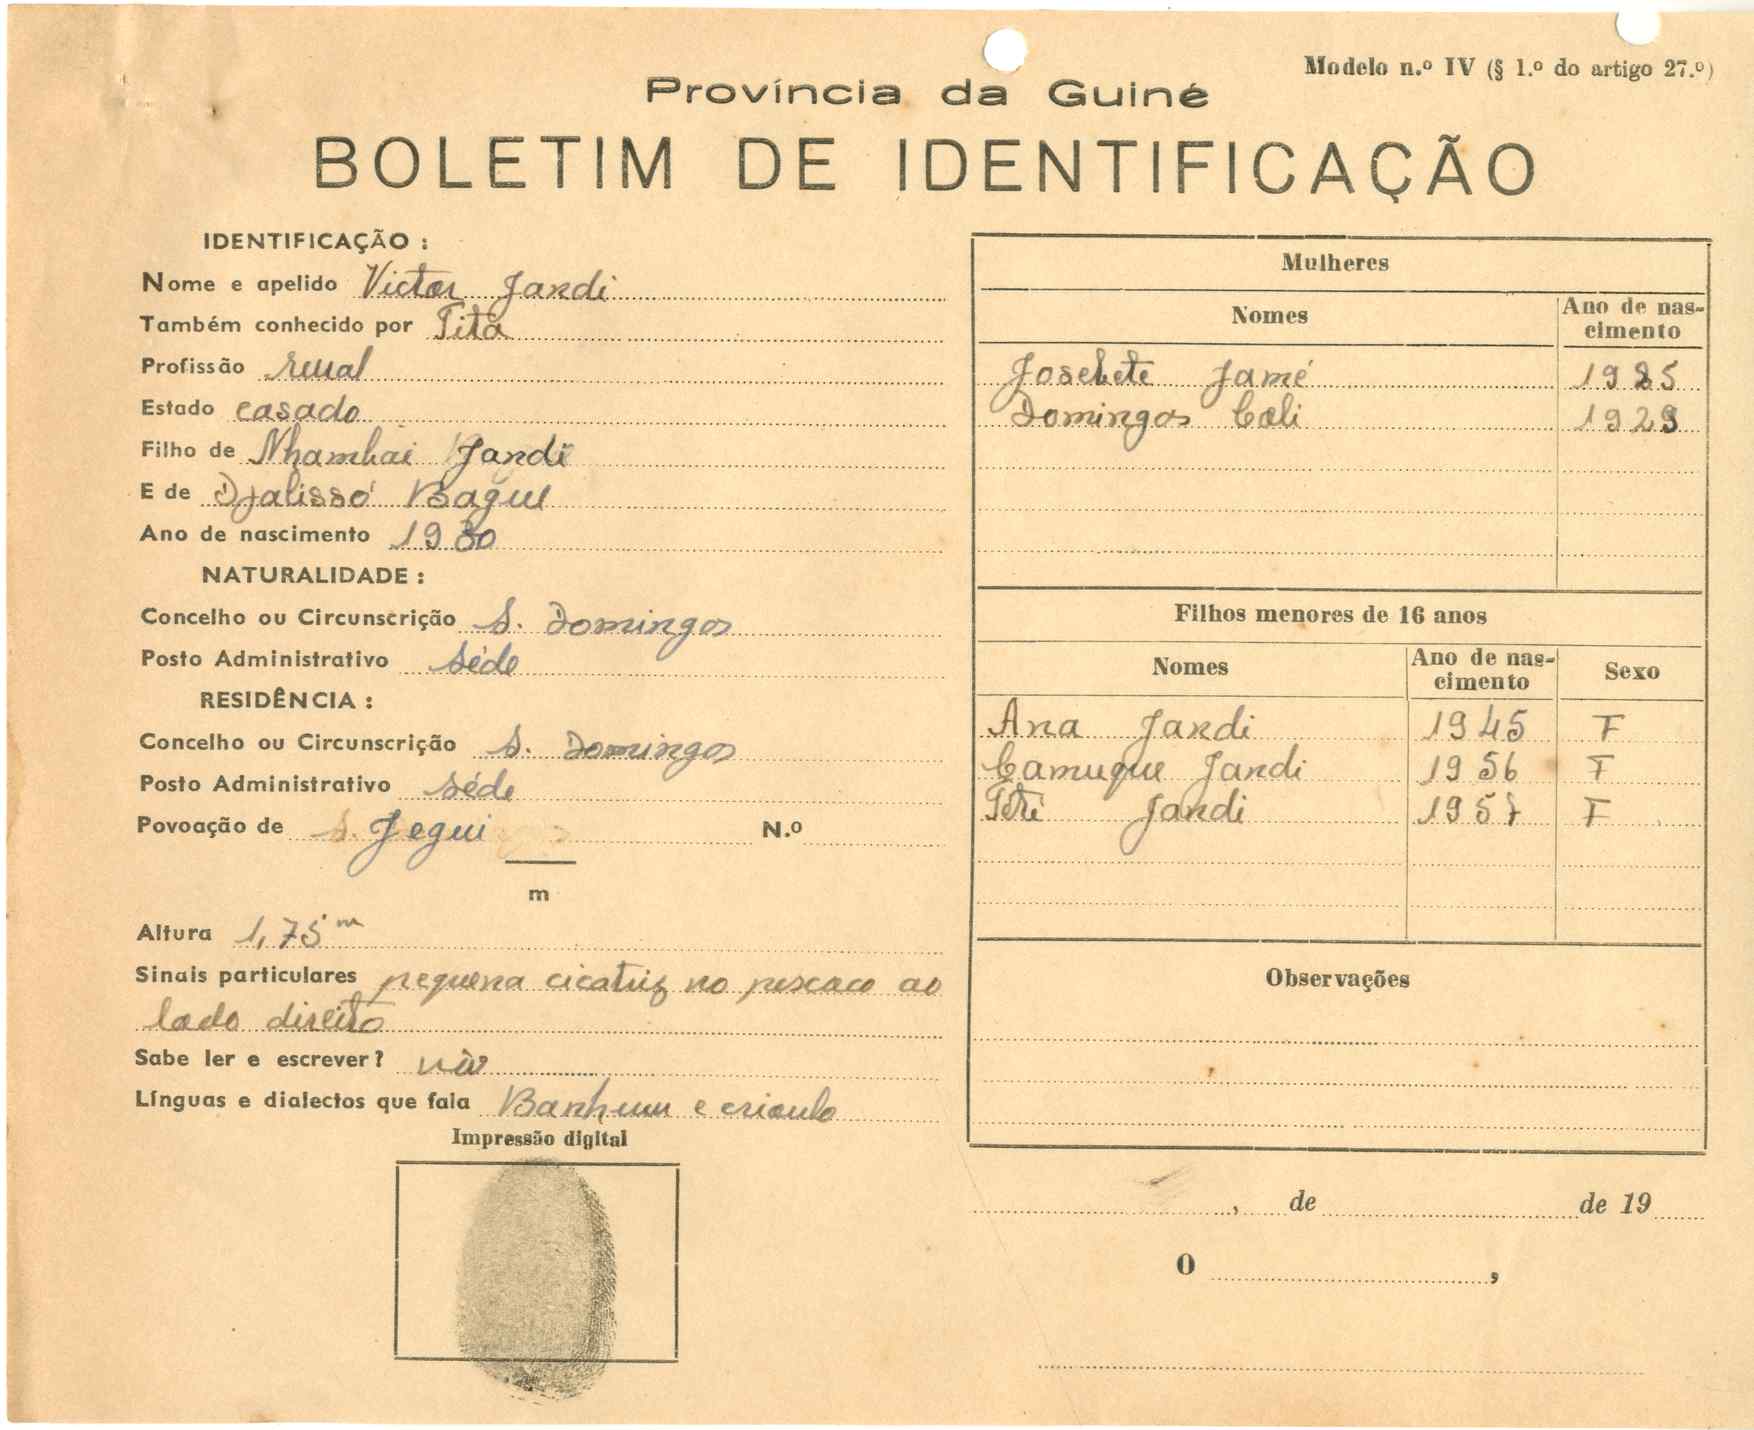 Modelo n.º IV (§ 1.º do artigo 27.º)
Província da Guiné
BOLETIM DE IDENTIFICAÇÃO
IDENTIFICAÇÃO :
Nome e apelido Victor Jandi
Também conhecido por Titá
Profissão rural
Estado casado
Filho de Nhambai Jandi
E de Djalissó Bague
Ano de nascimento 1930
NATURALIDADE :
Concelho ou Circunscrição S. Domingos
Posto Administrativo Séde
RESIDÊNCIA :
Concelho ou Circunscrição S. Domingos
Posto Administrativo Séde
Povoação de Jegui N.º
m
Altura 1,75 m
Sinais particulares pequena cicatriz no pescoco ao
lado direito
Sabe ler e escrever? não
Línguas e dialectos que fala Banhum e crioulo
Impressão digital
Mulheres
Nomes Ano de nas-
cimento
Josebete Jamé
Domingas Coli
Filhos menores de 16 anos
Nomes Ano de nas-
cimento Sexo
Ana Jandi 1945 F
Camuque Jandi 1956 F
Jandi 1957 F
Observações
, de de 19
O ,